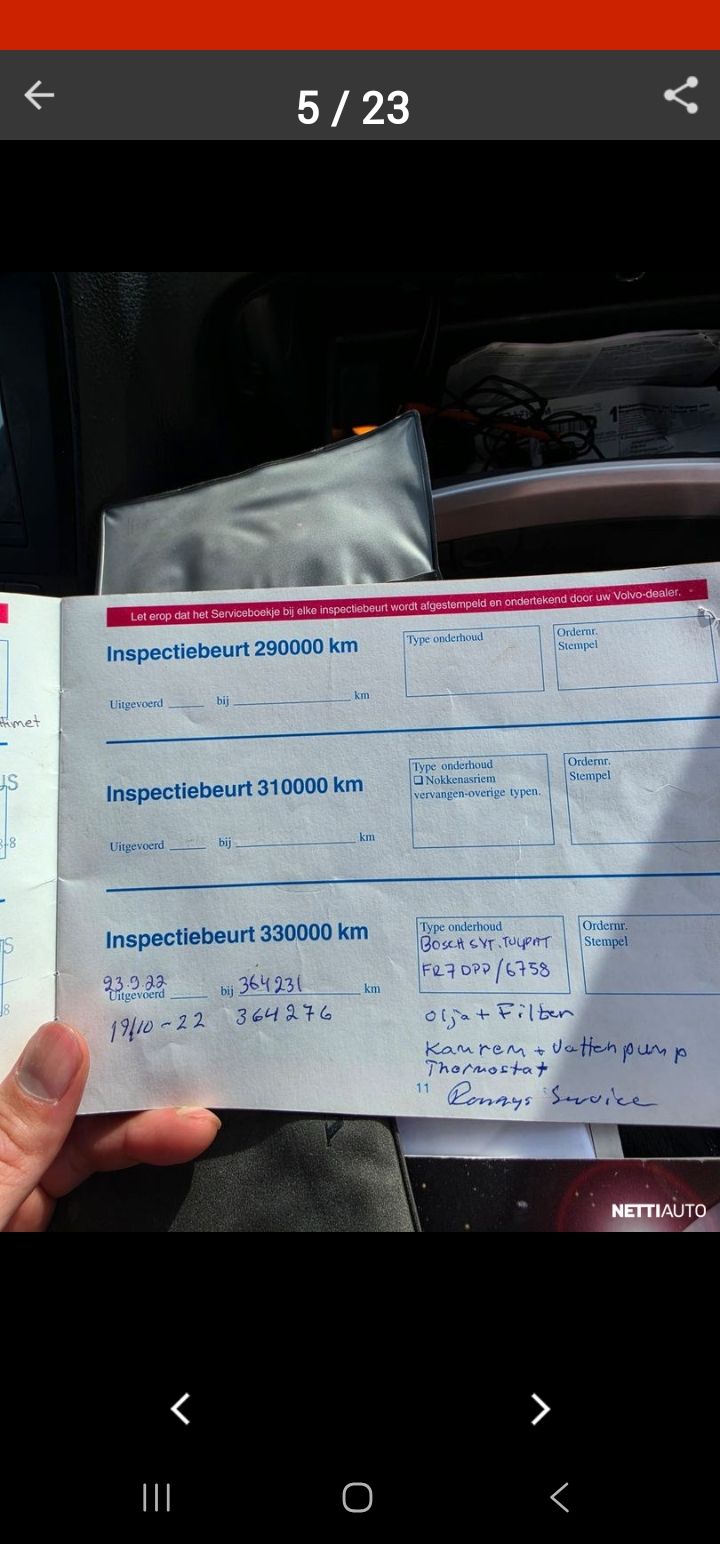 5 / 23
Let erop dat het Serviceboekje bij elke inspectiebeurt wordt afgestempeld en ondertekend door uw Volvo-dealer.
Inspectiebeurt 290000 km
Type onderhoud
Ordernr.
Stempel
Uitgevoerd bij km
Inspectiebeurt 310000 km
Type onderhoud
Nokkenasriem
vervangen-overige typen.
Ordernr.
Stempel
Uitgevoerd bij km
Inspectiebeurt 330000 km
Type onderhoud
BOSCH SYT.TULPAT
FR7DPP/6758
Ordernr.
Stempel
23.9.22
Uitgevoerd bij 364231 km
19/10-22 364276
Olja + Filter
Kamrem + Vattenpump
Thermostat
11
Ronnys Service
NETTIAUTO